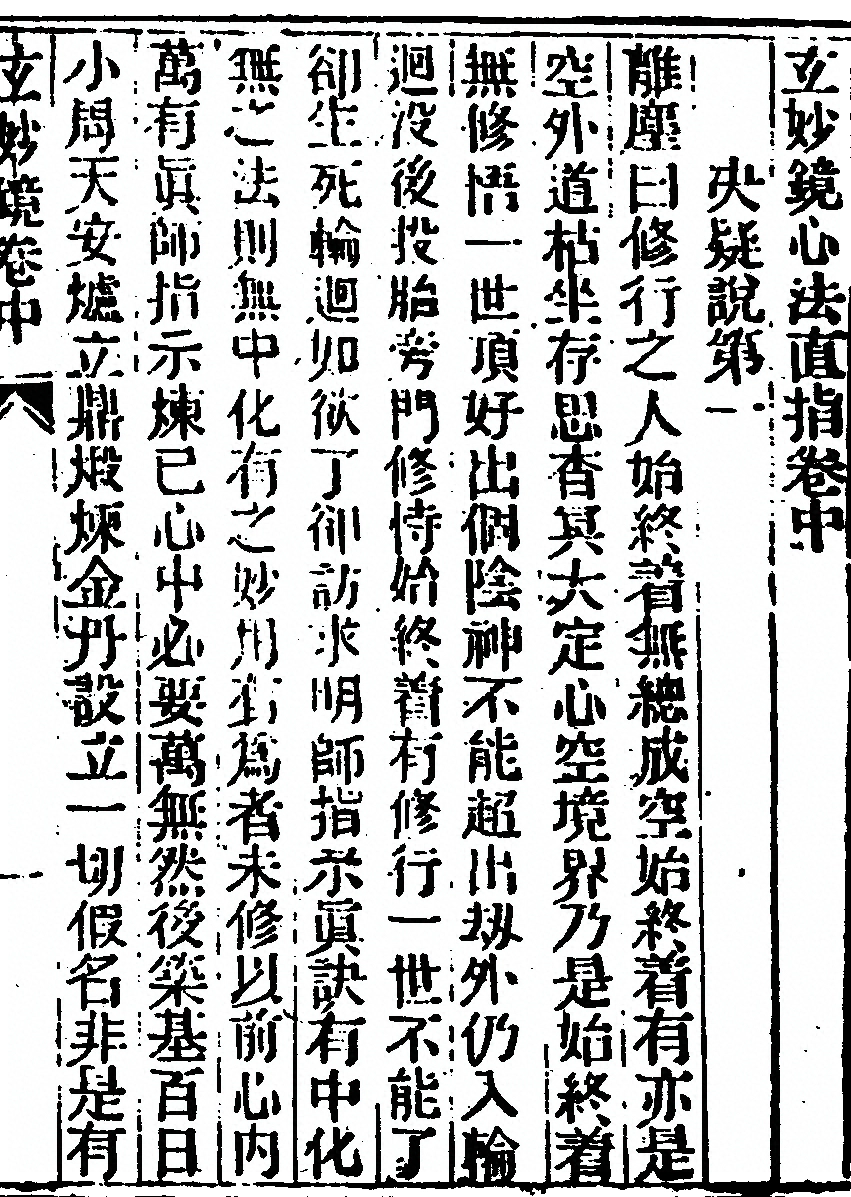 玄妙鏡心法直指卷中
決疑說第一
離塵曰修行之人始終着無總成空始終着有亦是
空外道枯坐存思杳冥大定心空境界乃是始終着
無修悟一世項好出個陰神不能超出劫外仍入輪
迴没後投胎旁門修持始終着有修行一世不能了
卻生死輪迴如欲了卻訪求明師指示眞訣有中化
無之法則無中化有之妙用 爲者未修以前心内
萬有眞師指示煉已心中必要萬無然後築基百日
小周天安爐立鼎煅煉金丹設立一切假名非是有
玄妙鏡卷中